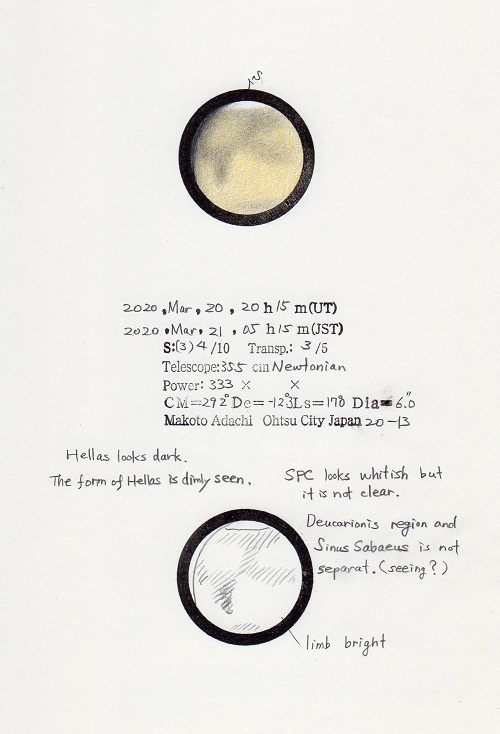 2020, Mar, 20, 20 h 15 m(UT)
2020, Mar, 21, 05 h 15 m(JST)
S:(3)4/10 Transp.: 3/5
Telescope:355 cm Newtonian
Power: 333 × ×
CM=292° De=-12.3 Ls=178 Dia=6.0"
Makoto Adachi Ohtsu City Japan 20-13
Hellas looks dark.
The form of Hellas is dimly seen.
SPC looks whitish but
it is not clear.
Deucarionis region and
Sinus Sabaeus is not
separat. (seeing?)
limb bright